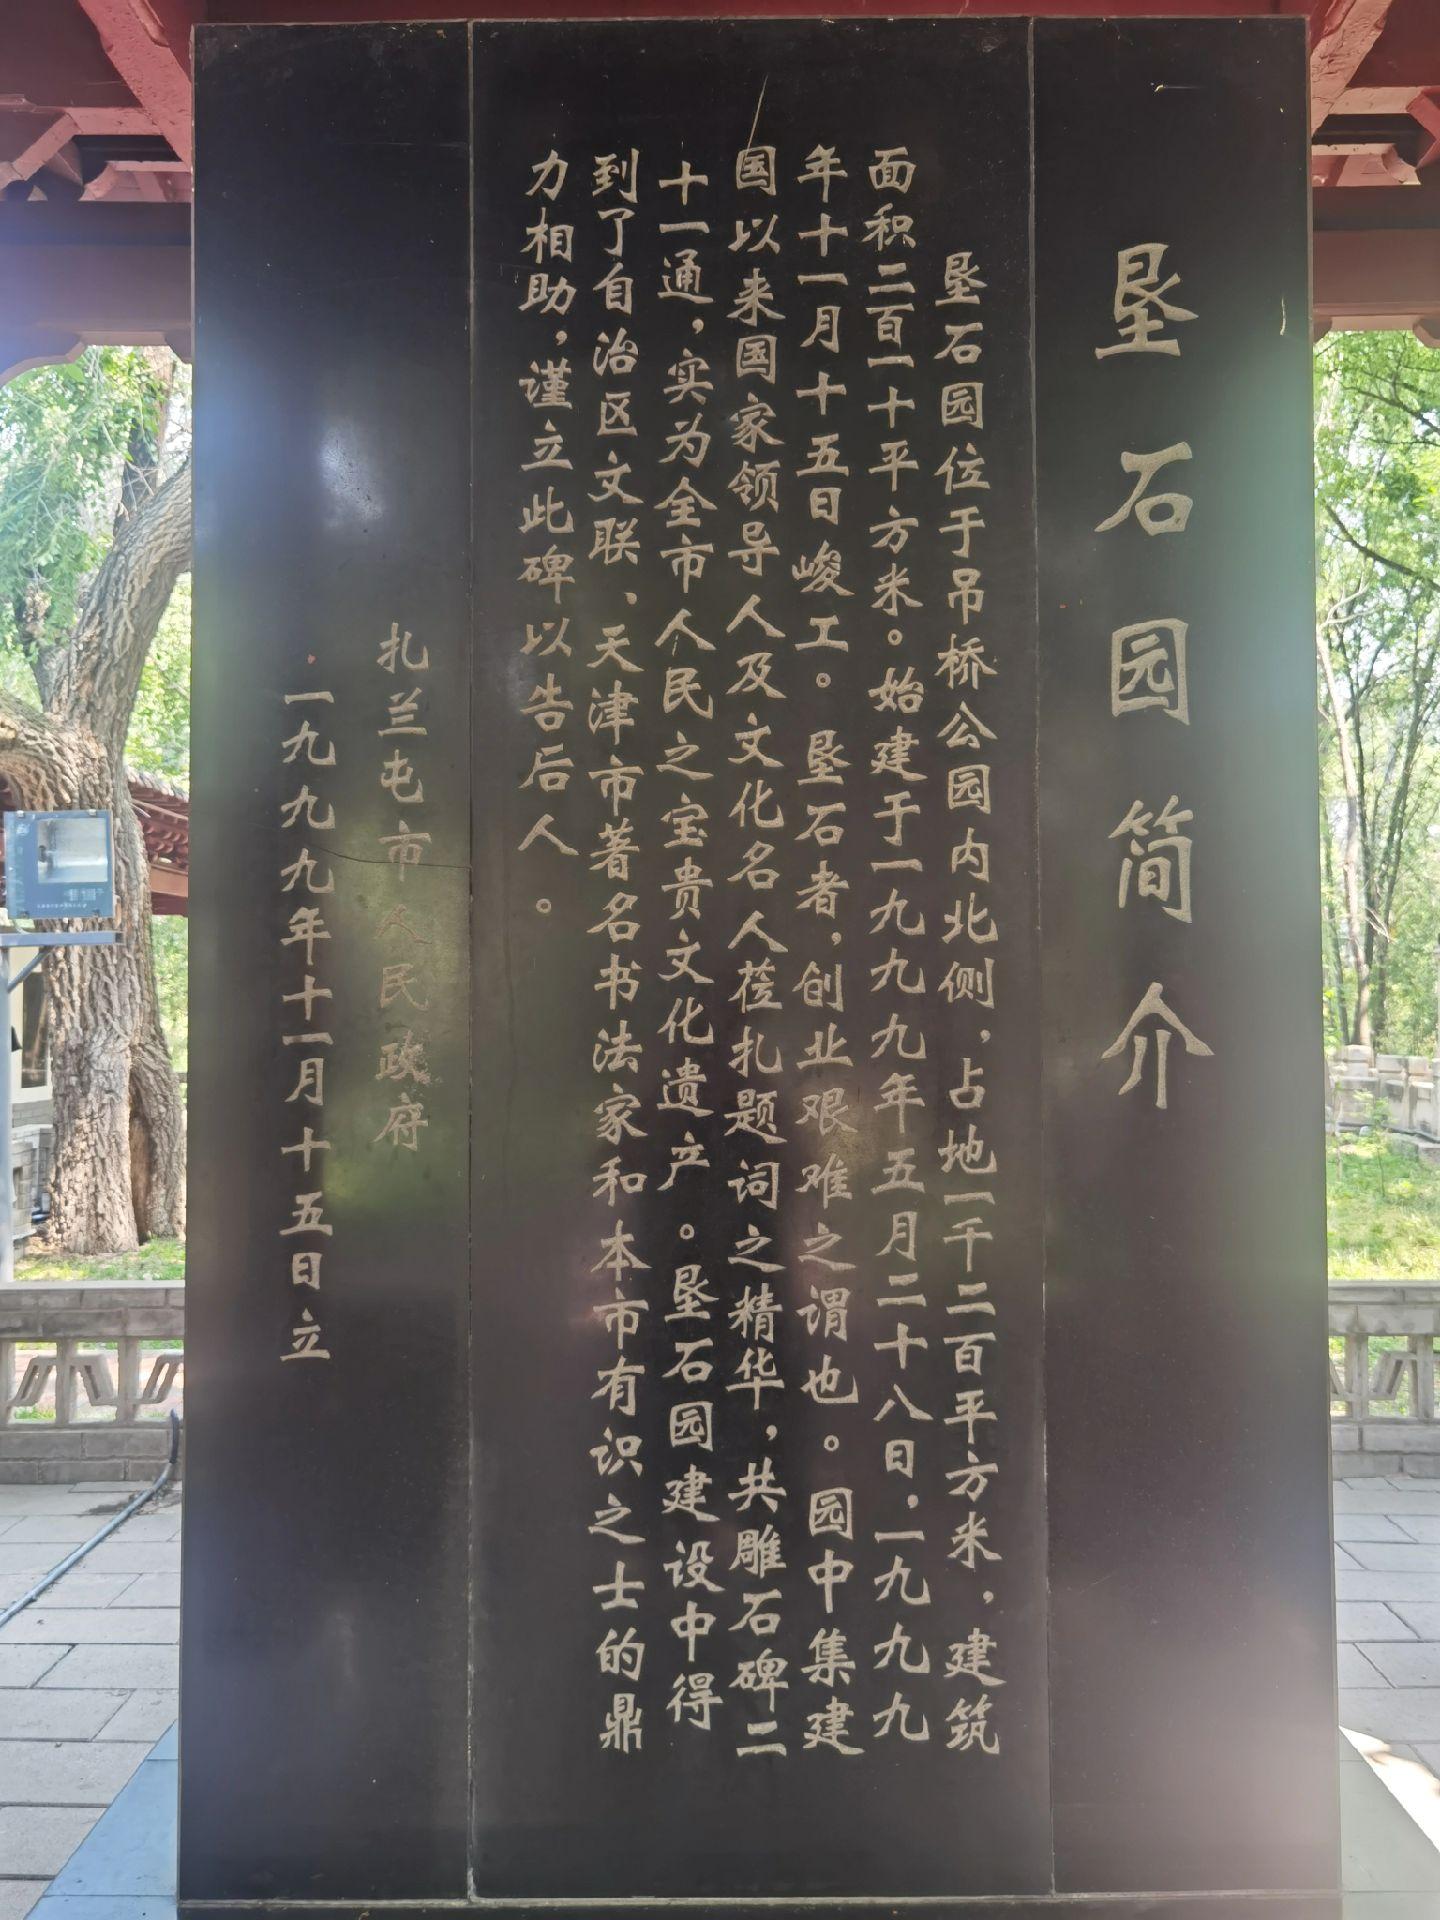 垦石园简介
垦石园位于吊桥公园内北侧，占地一千二百平方米，建筑
面积二百一十平方米。始建于一九九九年五月二十八日，一九九九
年十一月十五日峻工。垦石者，创业艰难之谓也。园中集建
国以来国家领导人及文化名人莅扎题词之精华，共雕石碑二
十一通，实为全市人民之宝贵文化遗产。垦石园建设中得
到了自治区文联、天津市著名书法家和本市有识之士的鼎
力相助，谨立此碑以告后人。
扎兰屯市人民政府
一九九九年十一月十五日立